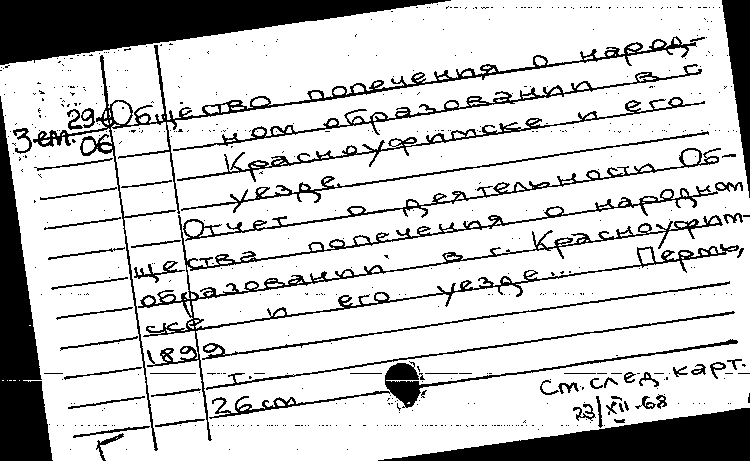 Зем. 29-6
06
Общество попечения о народ-
ном образовании в г.
Красноуфимске и его
уезде.
Отчет о деятельности Об-
щества попечения о народном
образовании в г. Красноуфим-
ске и его уезде... Пермь,
1899
т.
26 см
См. след. карт.
23/XII-68
Г